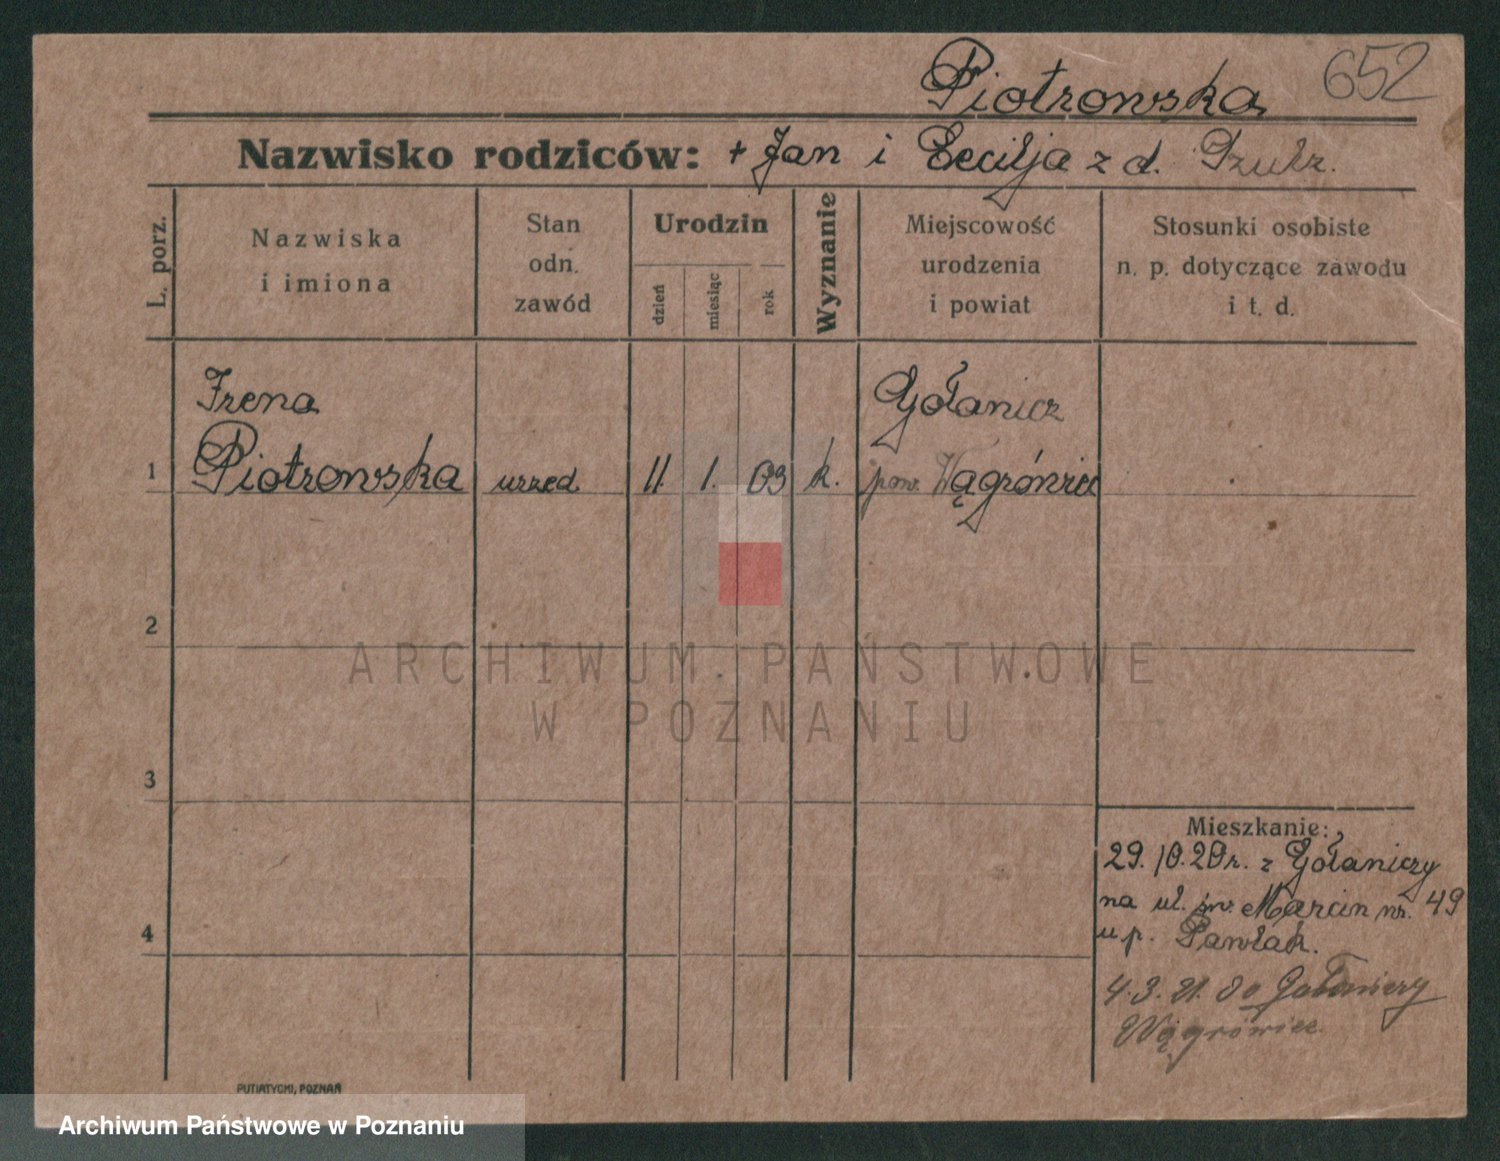 Piotrowska 652
Nazwisko rodziców: + Jan i Cecilja z d. Szulz.
L. porz.
Nazwiska
i imiona
Stan
odn.
zawód
Urodzin
dzień
miesiąc
rok
Wyznanie
Miejscowość
urodzenia
i powiat
Stosunki osobiste
n. p. dotyczące zawodu
i t. d.
Irena Gołanicz
1 Piotrowska urzed 11. 1. 03 k. pow. Wągrówiec
2
ARCHIWUM PAŃSTWOWE
W POZNANIU
3
Mieszkanie:
29. 10. 20 r. z Gołaniczy
na ul. św. Marcin nr. 49
4
u p. Pawlak.
4. 3. 21. do Gołaniczy
Wągrówiec
PUTIATYCKI, POZNAŃ
Archiwum Państwowe w Poznaniu